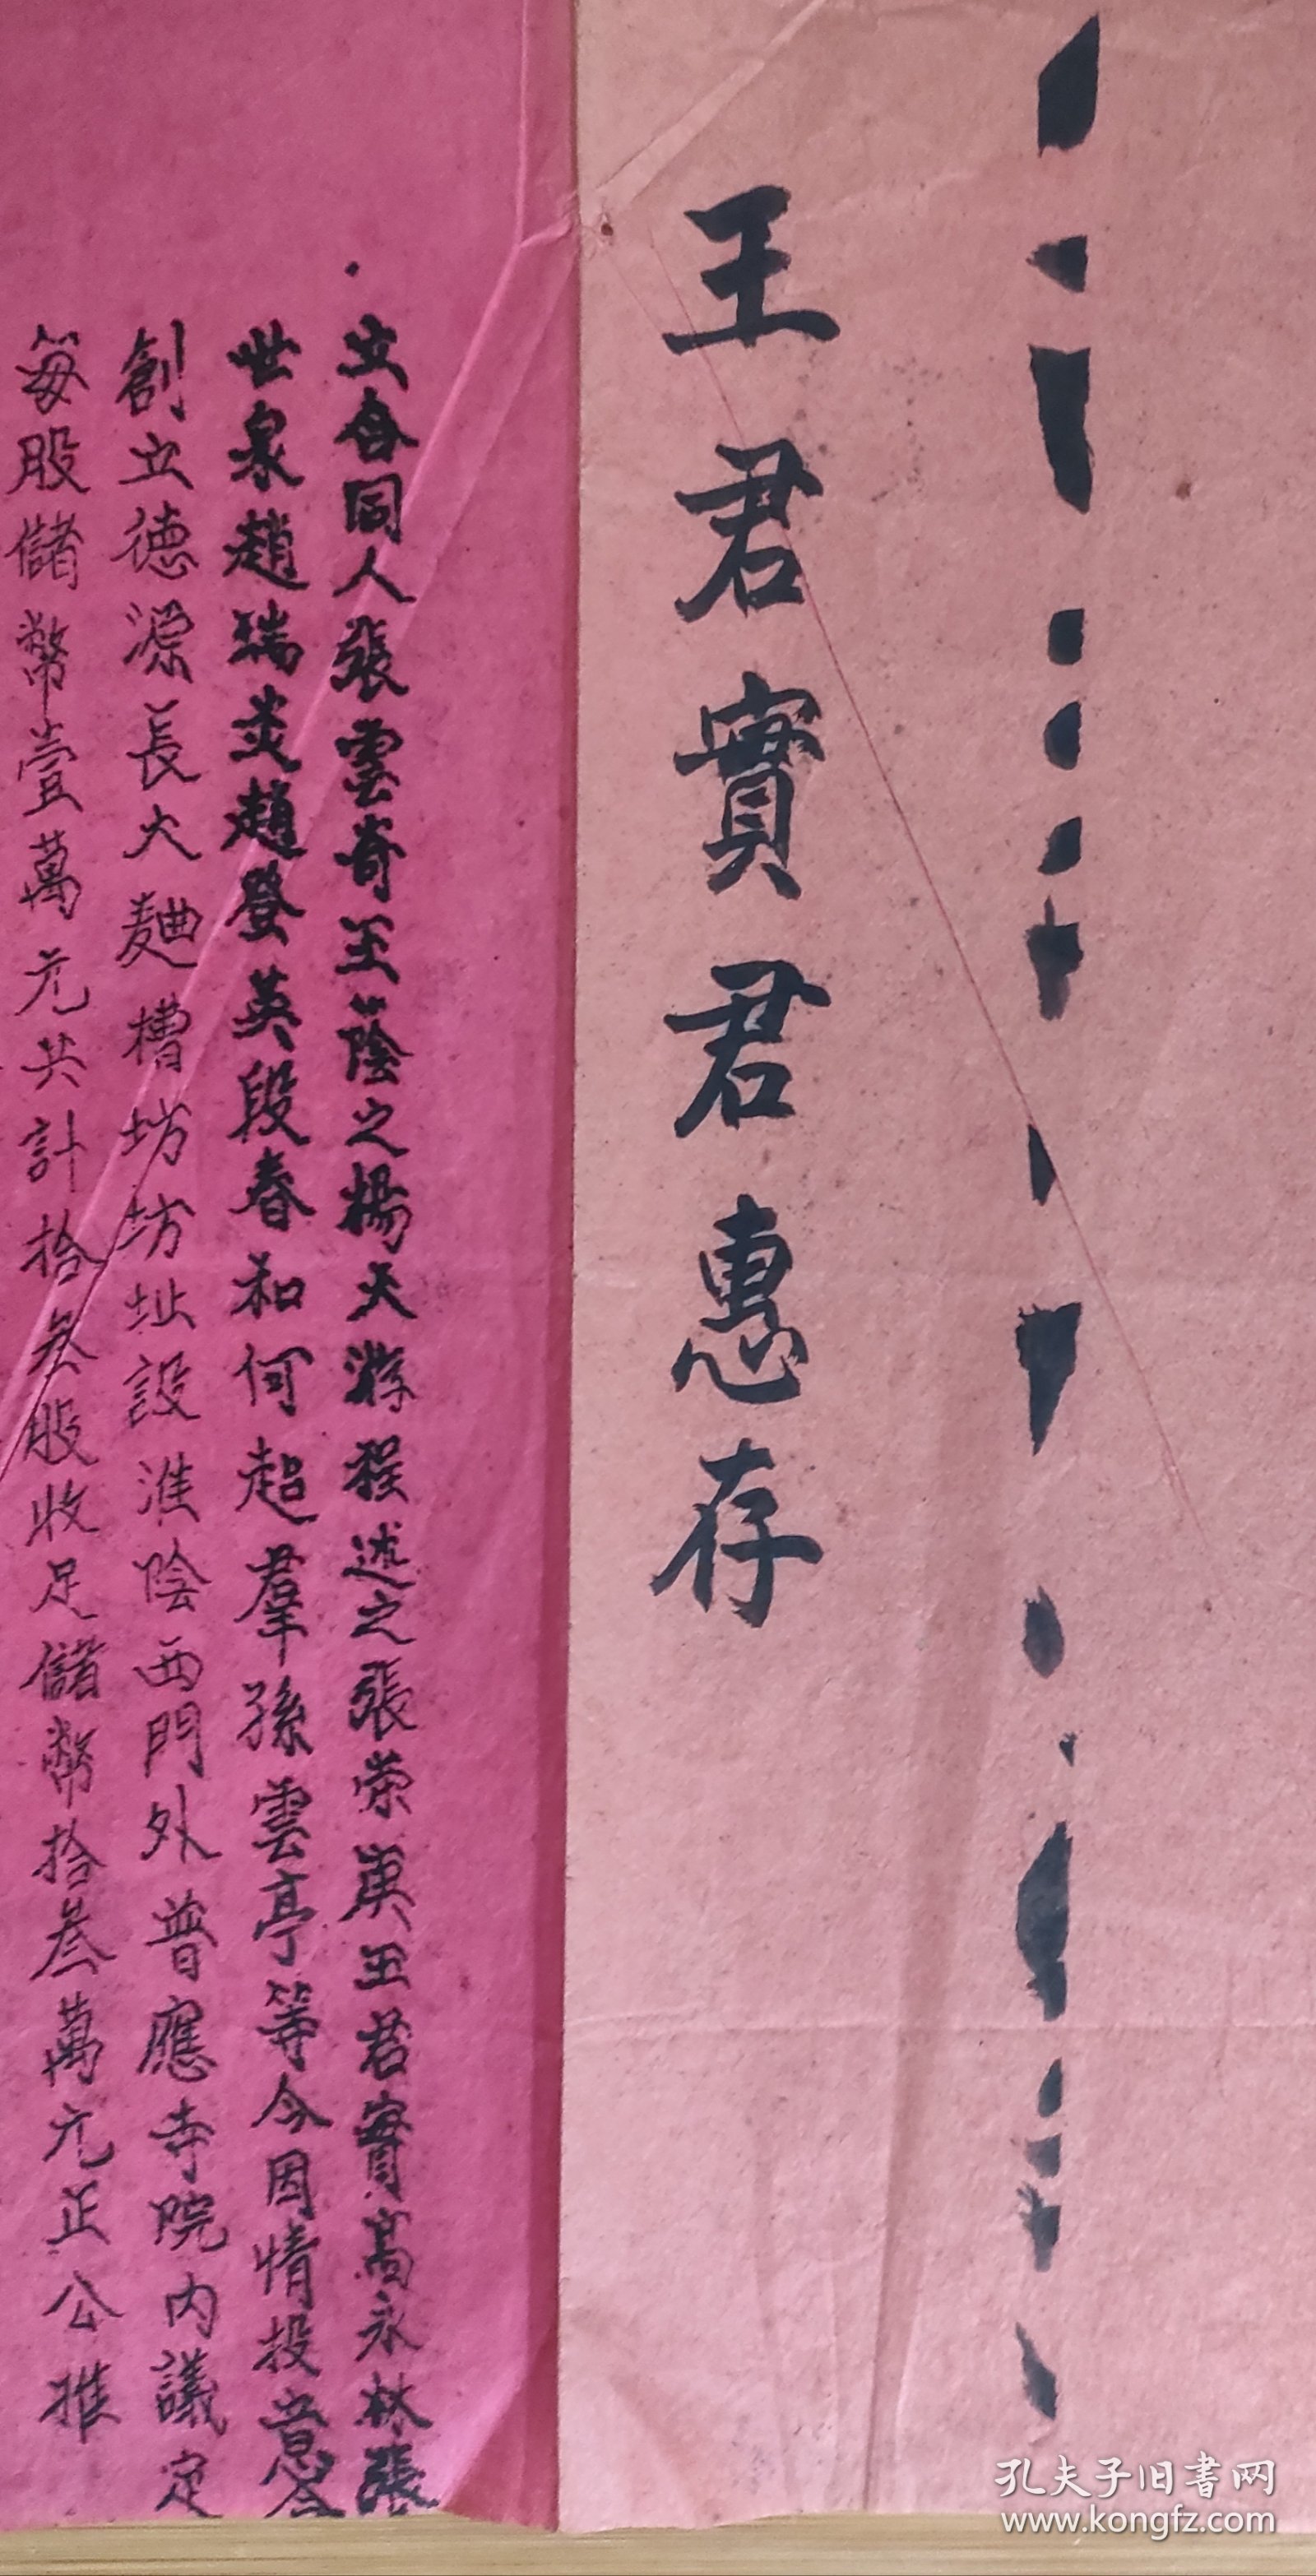 王君實君惠存
立合同人張雲奇王蔭之楊天游程述之張榮庚王君實高永林張
世泉趙瑞炎趙登英段春和何超羣孫雲亭等今因情投意合
創立德源長大麯槽坊坊址設淮陰西門外普應寺院內議定
每股儲幣壹萬元共計拾叁股收足儲幣拾叁萬元正公推
孔夫子旧書网
www.kongfz.com